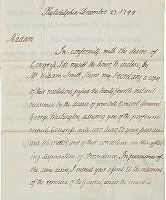 Philadelphia December 27 1799
Madam
In conformity with the desire of
Congress I do myself the honor to enclose, by
Mr William Smith Shaw my Secretary a copy
of their resolutions passed the twenty fourth instant
occasioned by the decease of your late Consort General
George Washington, assuring you of the profound
respect Congress will ever bear, to your person
and Character, and of their condolence on this
disposition of Providence. In pursuance of
the same desire, I entreat your assent to the interment
of the remains of the General under the marble